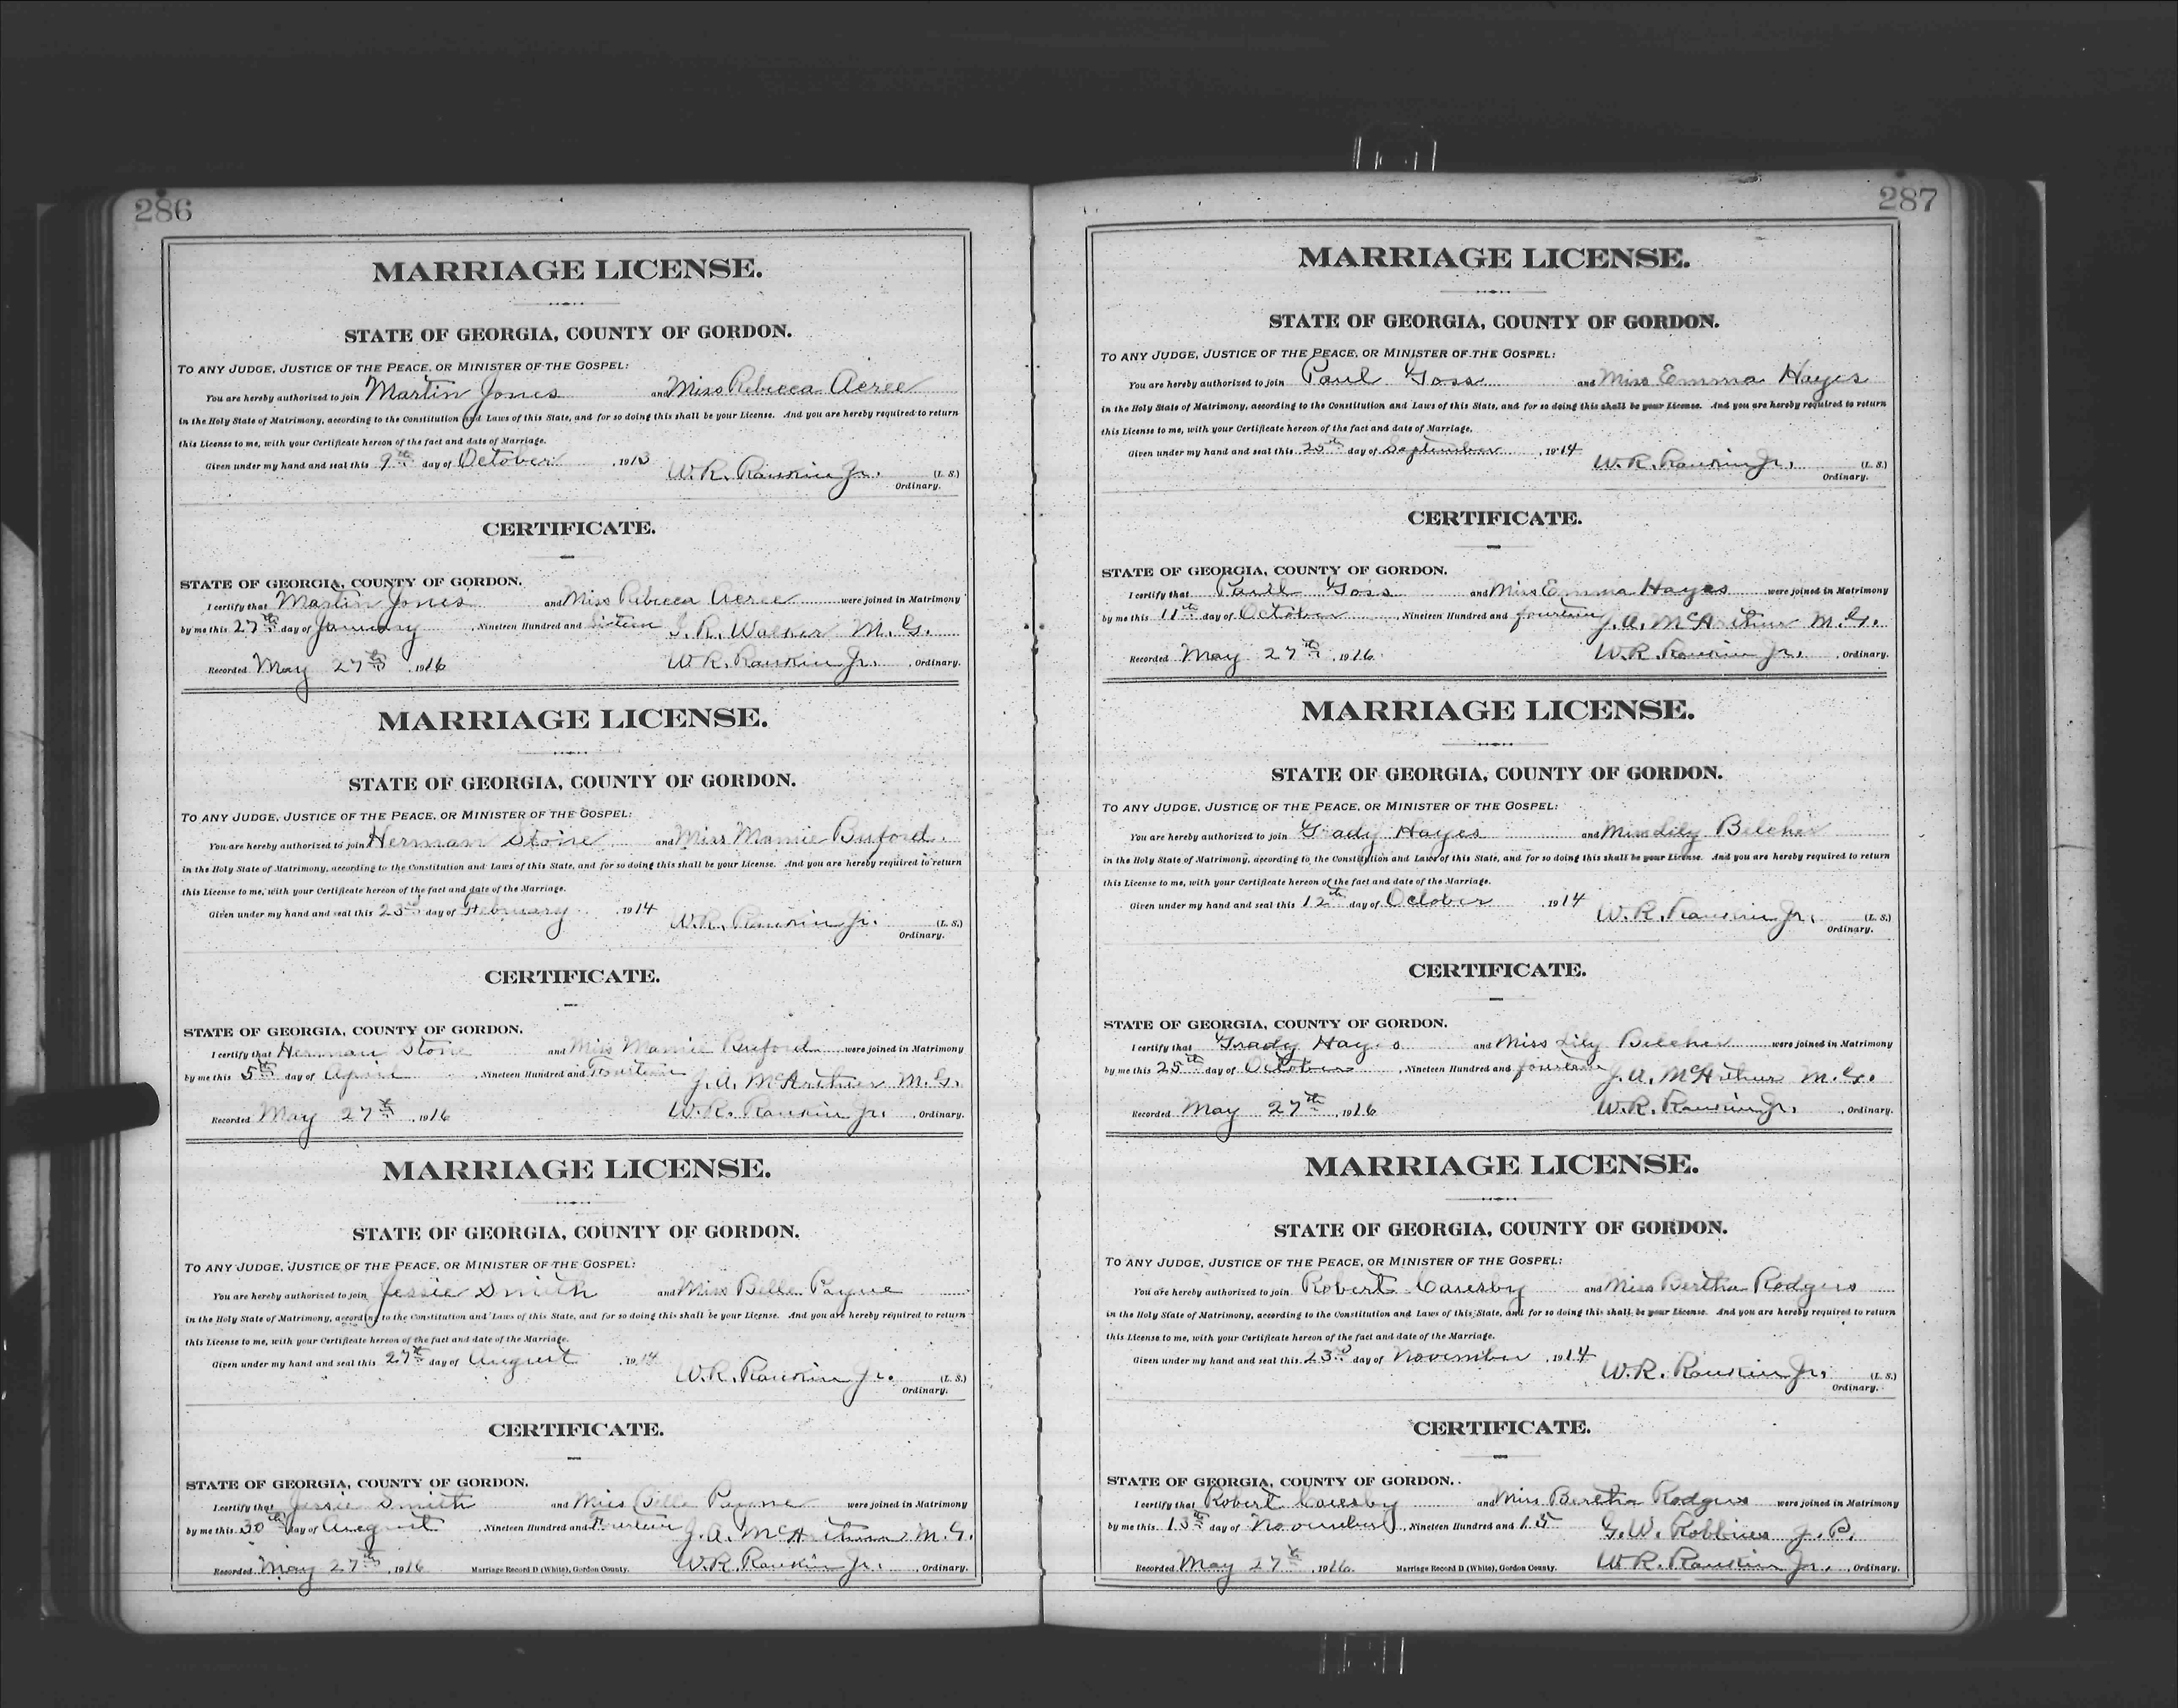 286
MARRIAGE LICENSE.
STATE OF GEORGIA, COUNTY OF GORDON.
TO ANY JUDGE, JUSTICE OF THE PEACE, OR MINISTER OF THE GOSPEL:
You are hereby authorized to join Martin Jones and Miss Rebecca Acree
in the Holy State of Matrimony, according to the Constitution and Laws of this State, and for so doing this shall be your License. And you are hereby required to return
this License to me, with your Certificate hereon of the fact and date of Marriage.
Given under my hand and seal this 9th day of October, 1913
W. R. Rankin Jr. (L. S.)
Ordinary.
CERTIFICATE.
STATE OF GEORGIA, COUNTY OF GORDON.
I certify that Martin Jones and Miss Rebecca Acree were joined in Matrimony
by me this 27th day of January, Nineteen Hundred and R. Walker M. G.
Recorded May 27th, 1916 W. R. Rankin Jr., Ordinary.
MARRIAGE LICENSE.
STATE OF GEORGIA, COUNTY OF GORDON.
TO ANY JUDGE, JUSTICE OF THE PEACE, OR MINISTER OF THE GOSPEL:
You are hereby authorized to join Herman Stone and Miss Mamie Buford.
in the Holy State of Matrimony, according to the Constitution and Laws of this State, and for so doing this shall be your License. And you are hereby required to return
this License to me, with your Certificate hereon of the fact and date of the Marriage.
Given under my hand and seal this 23rd day of February, 1914
W. R. Rankin Jr. (L. S.)
Ordinary.
CERTIFICATE.
STATE OF GEORGIA, COUNTY OF GORDON.
I certify that Herman Stone and Miss Mamie Buford were joined in Matrimony
by me this 5th day of April, Nineteen Hundred and Fourteen J. A. McArthur M. G.
Recorded May 27th, 1916 W. R. Rankin Jr., Ordinary.
MARRIAGE LICENSE.
STATE OF GEORGIA, COUNTY OF GORDON.
TO ANY JUDGE, JUSTICE OF THE PEACE, OR MINISTER OF THE GOSPEL:
You are hereby authorized to join Jessie Smith and Miss Belle Payne
in the Holy State of Matrimony, according to the Constitution and Laws of this State, and for so doing this shall be your License. And you are hereby required to return
this License to me, with your Certificate hereon of the fact and date of the Marriage.
Given under my hand and seal this 27th day of August, 1914
W. R. Rankin Jr. (L. S.)
Ordinary.
CERTIFICATE.
STATE OF GEORGIA, COUNTY OF GORDON.
I certify that Jessie Smith and Miss Belle Payne were joined in Matrimony
by me this 30th day of August, Nineteen Hundred and Fourteen J. A. McArthur M. G.
Recorded May 27th, 1916 Marriage Record D (White), Gordon County. W. R. Rankin Jr., Ordinary.
287
MARRIAGE LICENSE.
STATE OF GEORGIA, COUNTY OF GORDON.
TO ANY JUDGE, JUSTICE OF THE PEACE, OR MINISTER OF THE GOSPEL:
You are hereby authorized to join Paul Goss and Miss Emma Hayes
in the Holy State of Matrimony, according to the Constitution and Laws of this State, and for so doing this shall be your License. And you are hereby required to return
this License to me, with your Certificate hereon of the fact and date of Marriage.
Given under my hand and seal this 25th day of September, 1914
W. R. Rankin Jr. (L. S.)
Ordinary.
CERTIFICATE.
STATE OF GEORGIA, COUNTY OF GORDON.
I certify that Paull Goss and Miss Emma Hayes were joined in Matrimony
by me this 11th day of October, Nineteen Hundred and fourteen J. A. McArthur M. G.
Recorded May 27th, 1916. W. R. Rankin Jr., Ordinary.
MARRIAGE LICENSE.
STATE OF GEORGIA, COUNTY OF GORDON.
TO ANY JUDGE, JUSTICE OF THE PEACE, OR MINISTER OF THE GOSPEL:
You are hereby authorized to join Grady Hayes and Miss Lily Belcher
in the Holy State of Matrimony, according to the Constitution and Laws of this State, and for so doing this shall be your License. And you are hereby required to return
this License to me, with your Certificate hereon of the fact and date of the Marriage.
Given under my hand and seal this 12th day of October, 1914
W. R. Rankin Jr. (L. S.)
Ordinary.
CERTIFICATE.
STATE OF GEORGIA, COUNTY OF GORDON.
I certify that Grady Hayes and Miss Lily Belcher were joined in Matrimony
by me this 25th day of October, Nineteen Hundred and fourteen J. A. McArthur M. G.
Recorded May 27th, 1916 W. R. Rankin Jr., Ordinary.
MARRIAGE LICENSE.
STATE OF GEORGIA, COUNTY OF GORDON.
TO ANY JUDGE, JUSTICE OF THE PEACE, OR MINISTER OF THE GOSPEL:
You are hereby authorized to join Robert Caresby and Miss Bertha Rodgers
in the Holy State of Matrimony, according to the Constitution and Laws of this State, and for so doing this shall be your License. And you are hereby required to return
this License to me, with your Certificate hereon of the fact and date of the Marriage.
Given under my hand and seal this 23rd day of November, 1914
W. R. Rankin Jr. (L. S.)
Ordinary.
CERTIFICATE.
STATE OF GEORGIA, COUNTY OF GORDON.
I certify that Robert Caresby and Miss Bertha Rodgers were joined in Matrimony
by me this 13th day of November, Nineteen Hundred and 15 G. W. Robbins J. P.
Recorded May 27th, 1916. Marriage Record D (White), Gordon County. W. R. Rankin Jr., Ordinary.